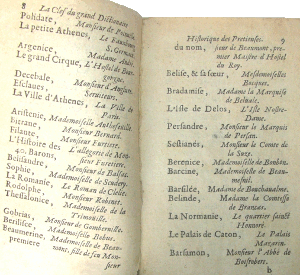 8 La Clef du grand Dictionaire
Polidate, Monsieur de
La petite Athenes, Le Fauxbourg
S. Germain
Argenice, Madame
Le grand Cirque, L'Hostel de Bourgogne.
Decebale, Monsieur
Esclaues,
La Ville d'Athenes, La Ville de
Paris.
Mademoiselle
Monsieur Bernard.
Filante, Monsieur Furetiere.
L'Histoire des L'allegorie de Monsieur
50. Barons, Furetiere.
Belisandre, Monsieur de Balsac.
Sophie, Mademoiselle de Scudery.
La Romanie, Le Roman de Clelie.
Rodolphe, Monsieur Robinet.
Thessalonice, Mademoiselle de la
Trimouille.
Gobrias, Monsieur de Gomberville.
Mademoiselle
Beaumerine Mademoiselle de Beaumont,
premiere
Monsieur
Historique des Pretieuses. 9
du nom, sieur de Beaumont, premier
Maistre d'Hostel
du Roy.
Belise, & sa sœur, Mesdemoiselles
Bradamise, Madame la Marquise
L'Isle de Delos, L'Isle Nostre-
Dame.
Persandre, Monsieur le Marquis
de Persan.
Sestianés, Monsieur le Comte de
la Suze.
Berenice, Mademoiselle
Barcine, Mademoiselle de Beaumesnil.
Barsilée, Madame de
Belinde, Madame la Comtesse
de Brancas.
La Normanie, Le quartier sainct
Honoré.
Le Palais de Caton, Le Palais
Mazarin.
Barsamon, Monsieur l'Abbé de
Boisrobert.
b